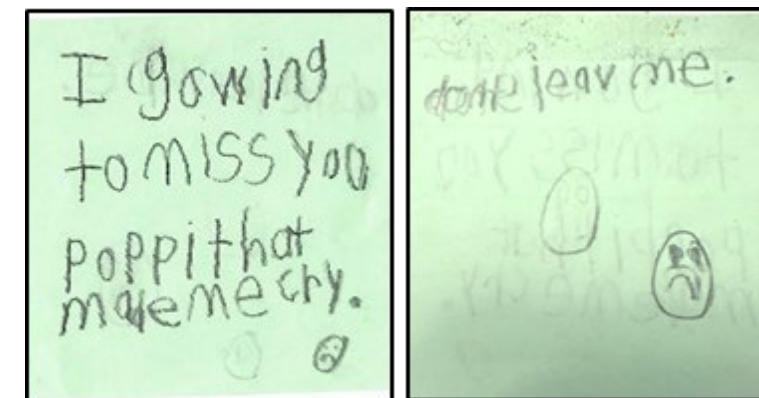 I gowing
to miss you
poppi that
made me cry.
done leav me.